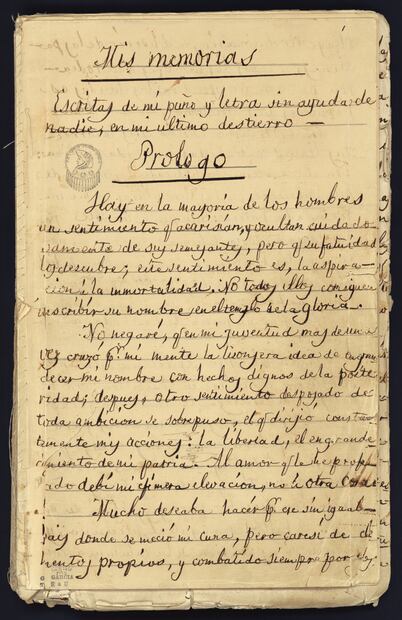 Mis memorias
Escritas de mi puño y letra sin ayuda de
nadie, en mi ultimo destierro —
Prologo
Hay en la mayoria de los hombres
un sentimiento q. acarisian, y ocultan cuidado-
samente de sus semejantes, pero q. su fatuidad
los descubre; este sentimiento es, la aspira-
cion á la inmortalidad. No todos ellos consiguen
inscribir su nombre en el templo de la Gloria.
No negaré, q. en mi juventud mas de una
vez cruzo pr. mi mente la lisonjera idea de engran
decer mi nombre con hechos dignos de la poste
ridad; despues, otro sentimiento despojado de
toda ambicion se sobrepuso, el q. dirijió constan
temente mis acciones: la libertad, el engrande
cimiento de mi patria. Al amor q. le he profe
sado debí mi primera elevacion, no á otra
Mucho deseaba hacer pr. ese sin igual
pais donde se meció mi cuna, pero caresí de ele
mentos propios, y combatido siempre por
GARCIA